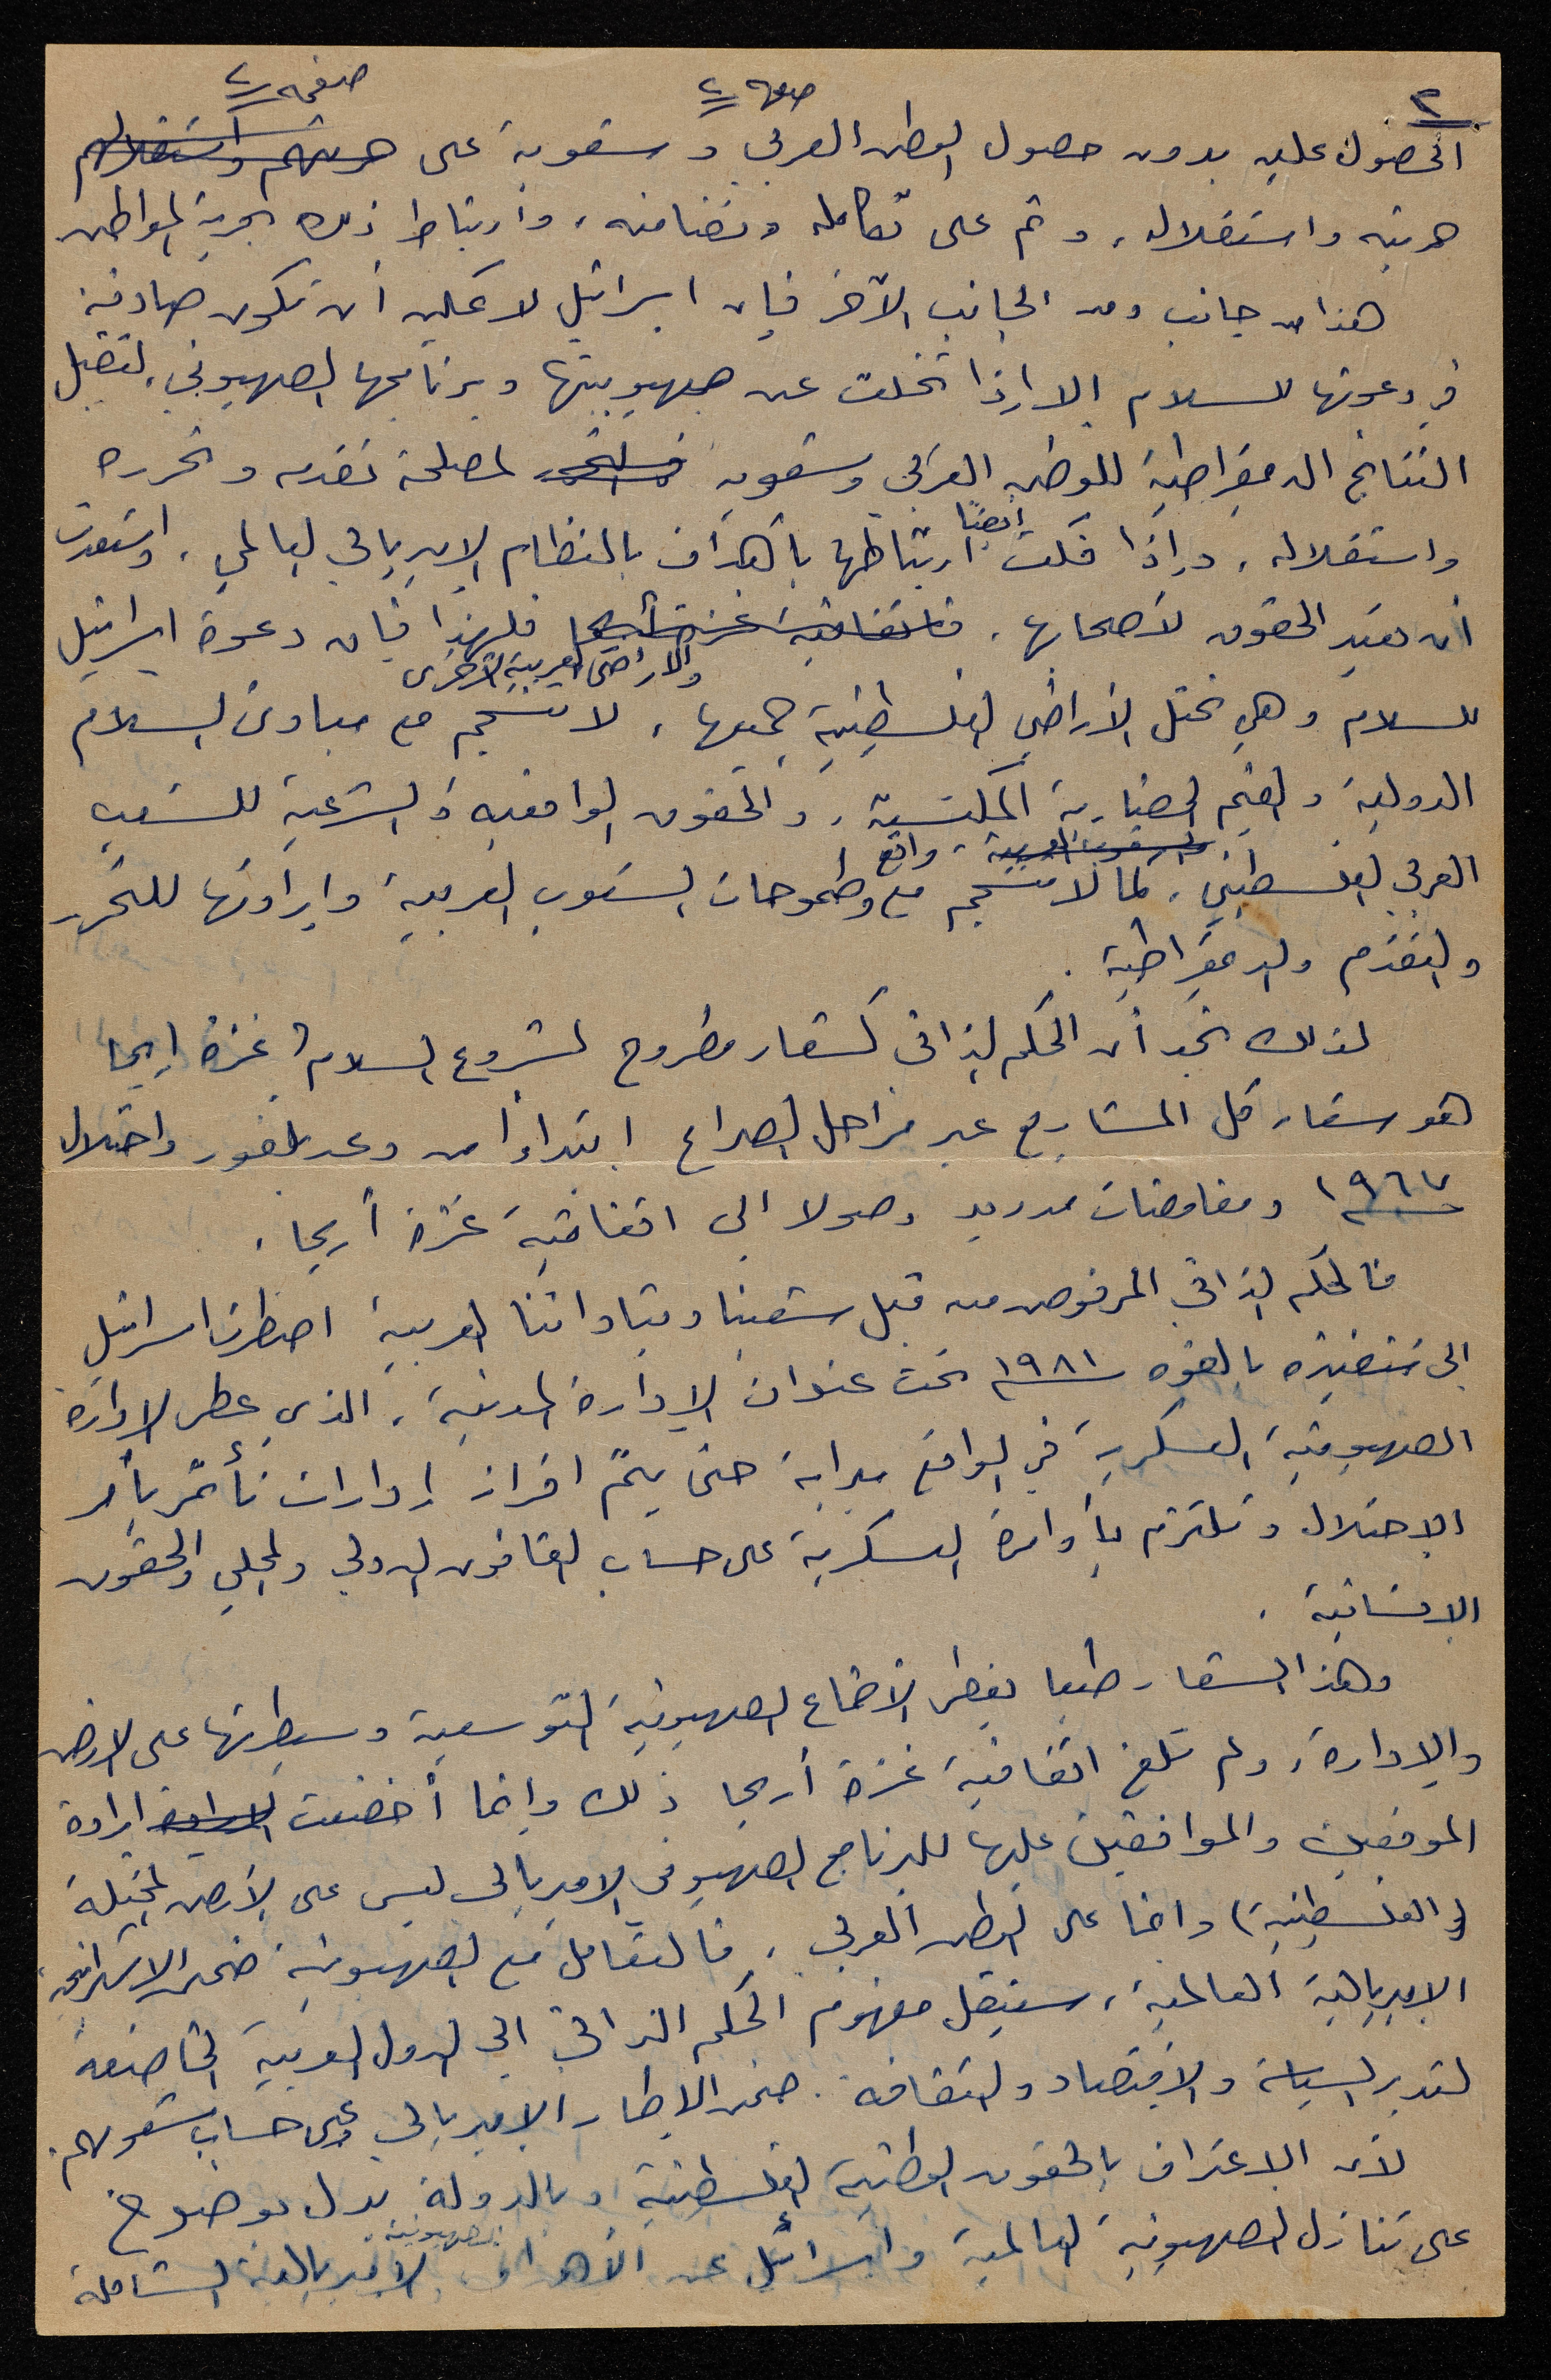 صفحة ٢ صفحة ٢ ٢
الحصول عليه بدون حصول الوطن العربي وشعوبه على حريتهم واستقلالهم
حريته واستقلاله، وثم على تكامله وتضامنه، وارتباط ذلك بحرية المواطن
هذا من جانب ومن الجانب الآخر فإن اسرائيل لا يمكن أن تكون صادقة
في دعوتها للسلام إلا إذا تخلت عن صهيونيتها وبرنامجها الصهيوني، لتقبل
النتائج الديمقراطية للوطن العربي وشعوبه لمصلحة تقدمه وتحرره
واستقلاله، وإذا فكت أيضاً ارتباطها بأهداف بالنظام الإمبريالي العالمي، واستعدت
أن تعيد الحقوق لأصحابها. فاتفاقية غزة أريحا فلهذا فإن دعوة اسرائيل
للسلام وهي تحتل الأراضي الفلسطينية جميعها والأراضي العربية الأخرى، لا تنسجم مع مبادئ السلام
الدولية والقيم الحضارية المكتسبة، والحقوق الواقعية والشرعية للشعب
العربي الفلسطيني، كما لا تنسجم مع واقع الشعوب العربية، وطموحات الشعوب العربية وإرادتها للتحرر
والتقدم والديمقراطية.
لذلك نجد أن الحكم الذاتي كشعار مطروح لمشروع السلام، غزة أريحا
هو شعار كل المشاريع عبر مراحل الصراع ابتداءً من وعد بلفور واحتلال
١٩٦٧ ومفاوضات مدريد وصولا الى اتفاقية غزة أريحا.
فالحكم الذاتي المرفوض من قبل شعبنا وقياداتنا العربية اضطرت اسرائيل
الى تنفيذه بالقوه ١٩٨١ تحت عنوان الإدارة المدنية، الذي غطى الإدارة
الصهيونية العسكرية في الواقع بداية حتى يتم افراز إدارات تأتمر بأمر
الإحتلال وتلتزم بأوامره العسكرية على حساب القانون الدولي والمحلي والحقوق
الإنسانية.
وهذا الشعار طبعا يغطي الأطماع الصهيونية التوسعية وسيطرتها على الارض
والإدارة، ولم تلغ اتفاقية غزة أريحا ذلك وإنما أخضعت الإرادة إرادة
الموقعين والموافقين عليها للبرنامج الصهيوني الإمبريالي ليس على الأرض المحتلة
(الفلسطينية) وانما على الوطن العربي. فالتعامل مع الصهيونية ضمن الاستراتيجية
الإمبريالية العالمية، سينقل مفهوم الحكم الذاتي الى الدول العربية الخاضعة
لتدير السياسة والإقتصاد والثقافة. ضمن الإطار الإمبريالي وعلى حساب شعوبهم.
لأن الإعتراف بالحقوق الوطنية الفلسطينية وبالدولة يدل بوضوح
على تنازل الصهيونية العالمية واسرائيل عن الأهداف الصهيونية، الإمبريالية الشاملة